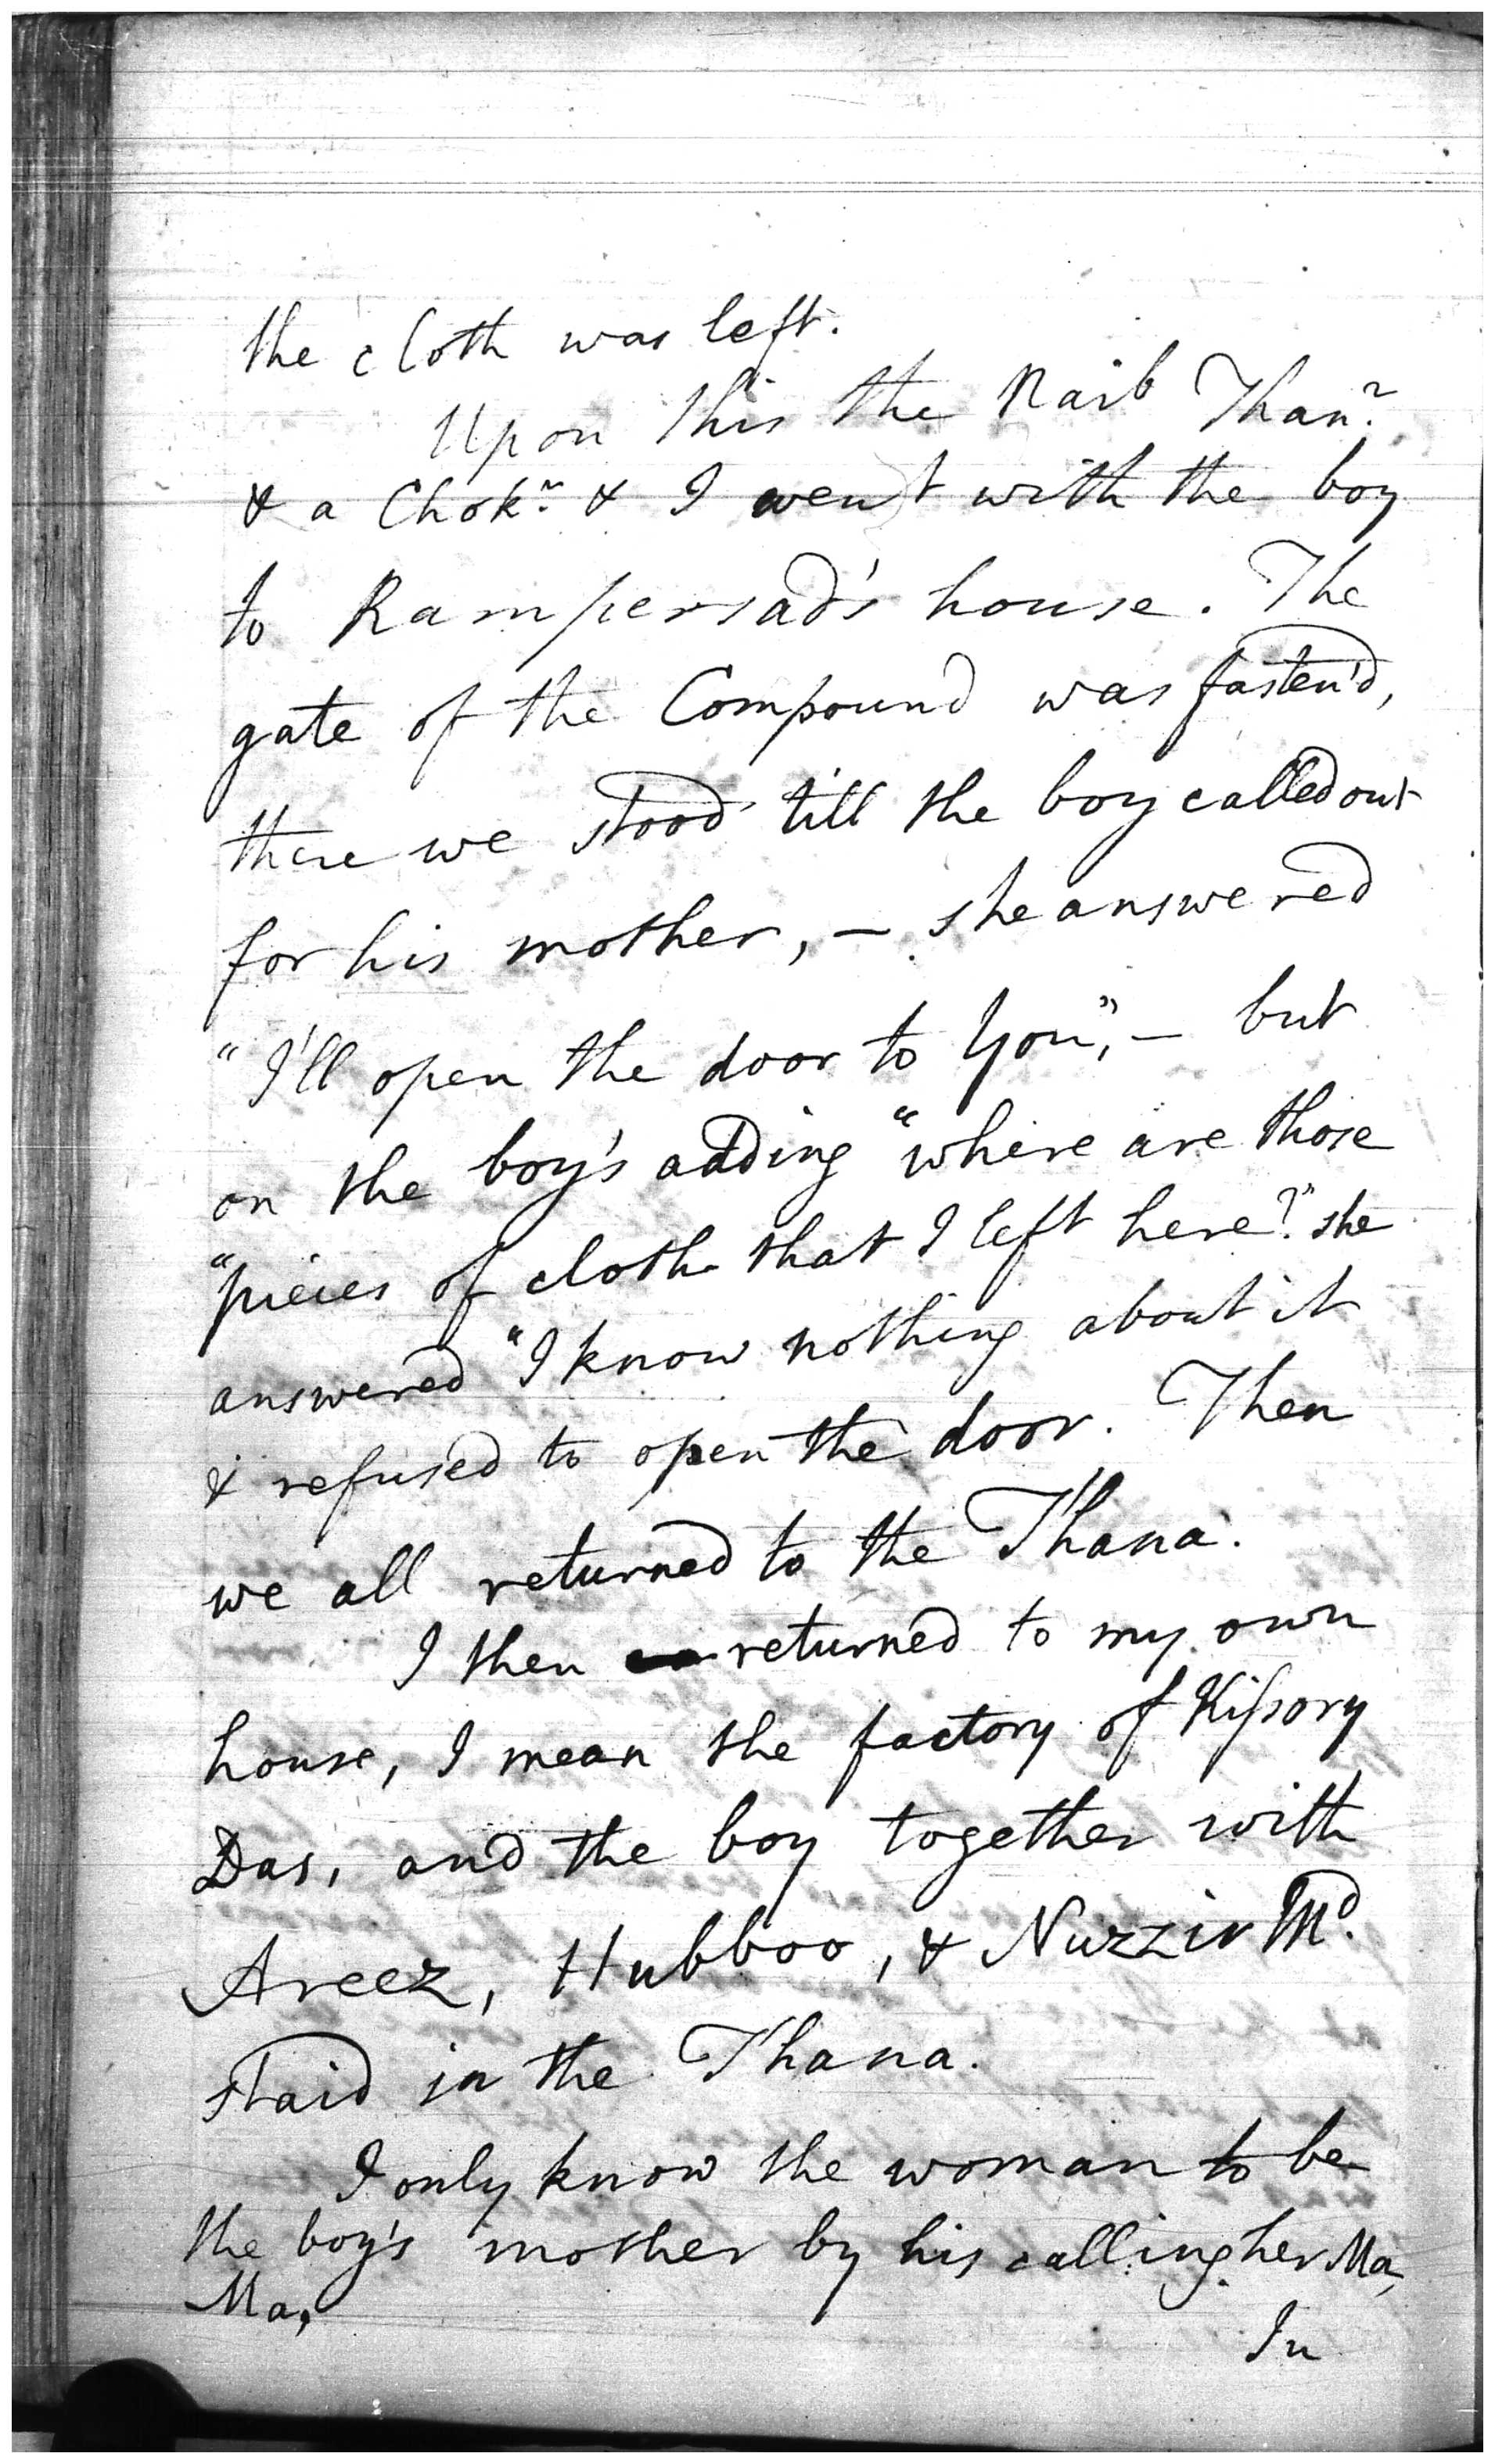 the cloth was left.
Upon this the Naib Than.r
& a Chok.r & I went with the boy
to Rampersad's house. The
gate of the Compound was fasten'd,
there we stood till the boy called out
for his mother, – she answered
"I'll open the door to You", – but
on the boy's adding "where are those
"pieces of cloth that I left here?" she
answered "I know nothing about it
& refused to open the door. Then
we all returned to the Thana.
I then returned to my own
house, I mean the factory of Kissory
Das, and the boy together with
Areez, Hubboo, & Nuzzir Md.
staid in the Thana.
I only know the woman to be
the boy's mother by his calling her Ma,
Ma,
In